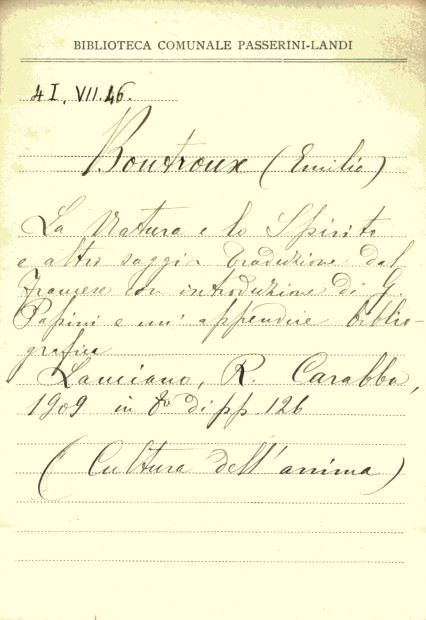 BIBLIOTECA COMUNALE PASSERINI-LANDI
4 I. VII. 46.
Boutroux (Emilio)
La Natura e lo Spirito
e altri saggi. Traduzione dal
francese con introduzione di G.
Papini e un' appendice biblio-
grafica
Lanciano, R. Carabba,
1909 in 8o di pp. 126
(Cultura dell'anima)